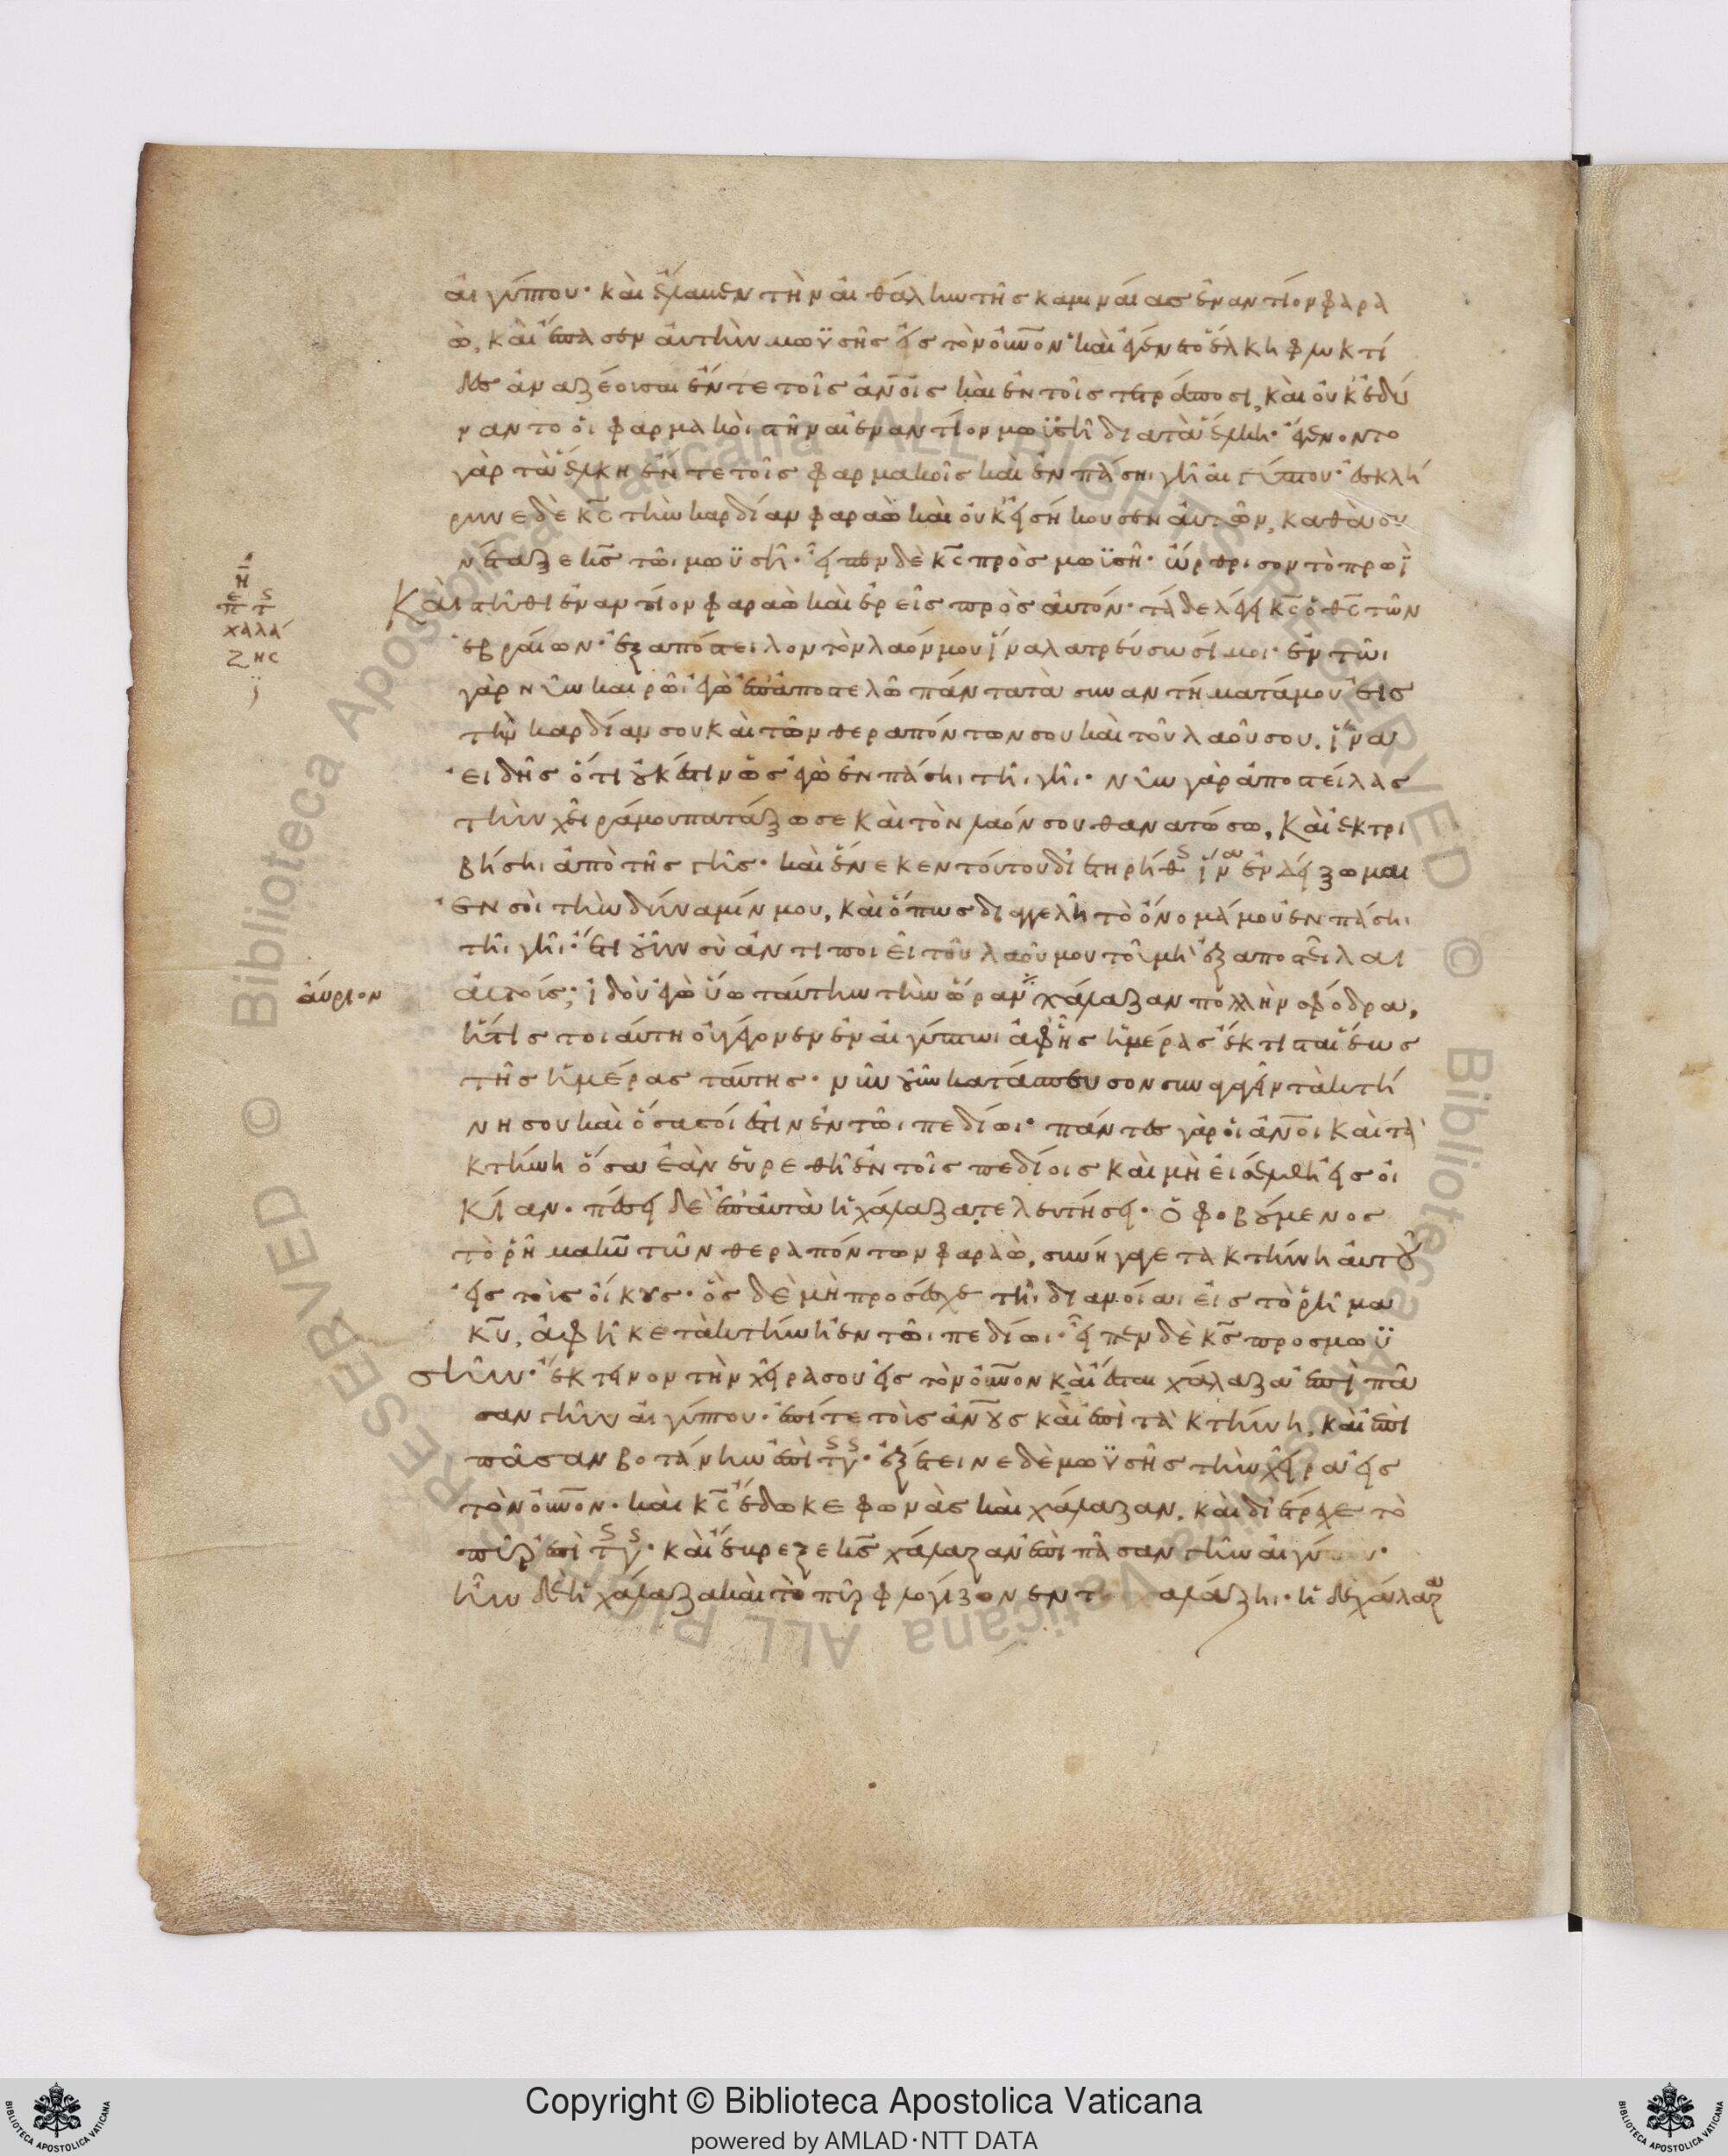 αἰγύπτου· καὶ ἔλαβεν τὴν αἰθάλην τῆς καμιναίας ἐναντίον φαρα
ὼ, καὶ ἔπασεν αὐτὴν μωϋσῆς εἰς τὸν οὐ̅νον· καὶ ἐγένετο ἕλκη φλυκτί
δες ἀναζέουσαι ἔν τε τοῖς ἀν̅οις καὶ ἐν τοῖς τετράποσι, καὶ οὐκ ἐδύ
ναντο οἱ φαρμακοὶ στῆναι ἐναντίον μωϋσῆ διὰ τὰ ἕλκη· ἐγένοντο
γὰρ τὰ ἕλκη ἔν τε τοῖς φαρμακοῖς καὶ ἐν πάσηι γῆι αἰγύπτου· ἐσκλή
ρυνε δὲ κ̅ς τὴν καρδίαν φαραὼ καὶ οὐκ εἰσήκουσεν αὐτῶν, καθὰ συ
νέταξε κ̅ς τῶι μωϋσῆ· εἶπεν δὲ κ̅ς πρὸς μωϋσῆ· ὤρθρισον τὸ πρωῒ
Καὶ στῆθι ἐναντίον φαραὼ καὶ ἐρεῖς πρὸς αὐτόν· τάδε λέγει κ̅ς ὁ θ̅ς τῶν
ἑβραίων· ἐξαπόστειλον τὸν λαόν μου ἵνα λατρεύσωσί μοι· ἐν τῶι
γὰρ νῦν καιρῶι ἐγὼ ἐξαποστελῶ πάντα τὰ συναντήματά μου εἰς
τὴν καρδίαν σου καὶ τῶν θεραπόντων σου καὶ τοῦ λαοῦ σου, ἵνα
εἰδῆς ὅτι οὐκ ἔστιν ὡς ἐγὼ ἐν πάσηι τῆι γῆι· νῦν γὰρ ἀποστείλας
τὴν χεῖρά μου πατάξω σε καὶ τὸν λαόν σου θανατώσω, Καὶ ἐκτρι
βήσηι ἀπὸ τῆς γῆς· καὶ ἕνεκεν τούτου διετηρήθς ἵνα ἐνδείξωμαι
ἐν σοὶ τὴν δύναμίν μου, καὶ ὅπως διαγγελῆ τὸ ὄνομά μου ἐν πάσηι
τῆι γῆι· ἔτι οὖν σὺ ἀντιποιεῖ τοῦ λαοῦ μου τοῦ μὴ ἐξαποστεῖλαι
αὐτούς; ἰδοὺ ἐγὼ ὕω ταύτην τὴν ὥραν χάλαζαν πολλὴν σφόδρα,
αὔριον
ἥτις τοιαύτη οὐ γέγονεν ἐν αἰγύπτωι ἀφ' ἧς ἡμέρας ἔκτισται ἕως
τῆς ἡμέρας ταύτης· νῦν οὖν κατάσπευσον συναγαγεῖν τὰ κτή
νη σου καὶ ὅσα σοί ἐστιν ἐν τῶι πεδίωι· πάντες γὰρ οἱ ἀν̅οι καὶ τὰ
κτήνη ὅσα ἐὰν εὑρεθῆ ἐν τοῖς πεδίοις καὶ μὴ εἰσέλθη εἰς οἰ
κίαν· πέση δὲ ἐπ' αὐτὰ ἡ χάλαζα τελευτήσει· ὁ φοβούμενος
τὸ ῥῆμα κ̅υ τῶν θεραπόντων φαραὼ, συνήγαγε τὰ κτήνη αὐτοῦ
εἰς τοὺς οἴκους· ὃς δὲ μὴ προσέσχε τῆι διανοίαι εἰς τὸ ῥῆμα
κ̅υ, ἀφῆκε τὰ κτήνη ἐν τῶι πεδίωι· εἶπεν δὲ κ̅ς πρὸς μωϋ
σῆν· ἔκτεινον τὴν χεῖρά σου εἰς τὸν οὐ̅νον καὶ ἔσται χάλαζα ἐπὶ πᾶ
σαν γῆν αἰγύπτου· ἐπί τε τοὺς ἀν̅ους καὶ ἐπὶ τὰ κτήνη, καὶ ἐπὶ
πᾶσαν βοτάνην ἐπὶ τς γς· ἐξέτεινε δὲ μωϋσῆς τὴν χεῖρα εἰς
τὸν οὐ̅νον· καὶ κ̅ς ἔδωκε φωνὰς καὶ χάλαζαν, καὶ διέτρεχε τὸ
πῦρ ἐπὶ τς γς· καὶ ἔβρεξε κ̅ς χάλαζαν ἐπὶ πᾶσαν γῆν αἰγύπτου·
ἦν δὲ ἡ χάλαζα καὶ τὸ πῦρ φλογίζον ἐν τῆ χαλάζηι· ἡ δὲ χάλαζα
ΧΑΛΑ
ΖΗC